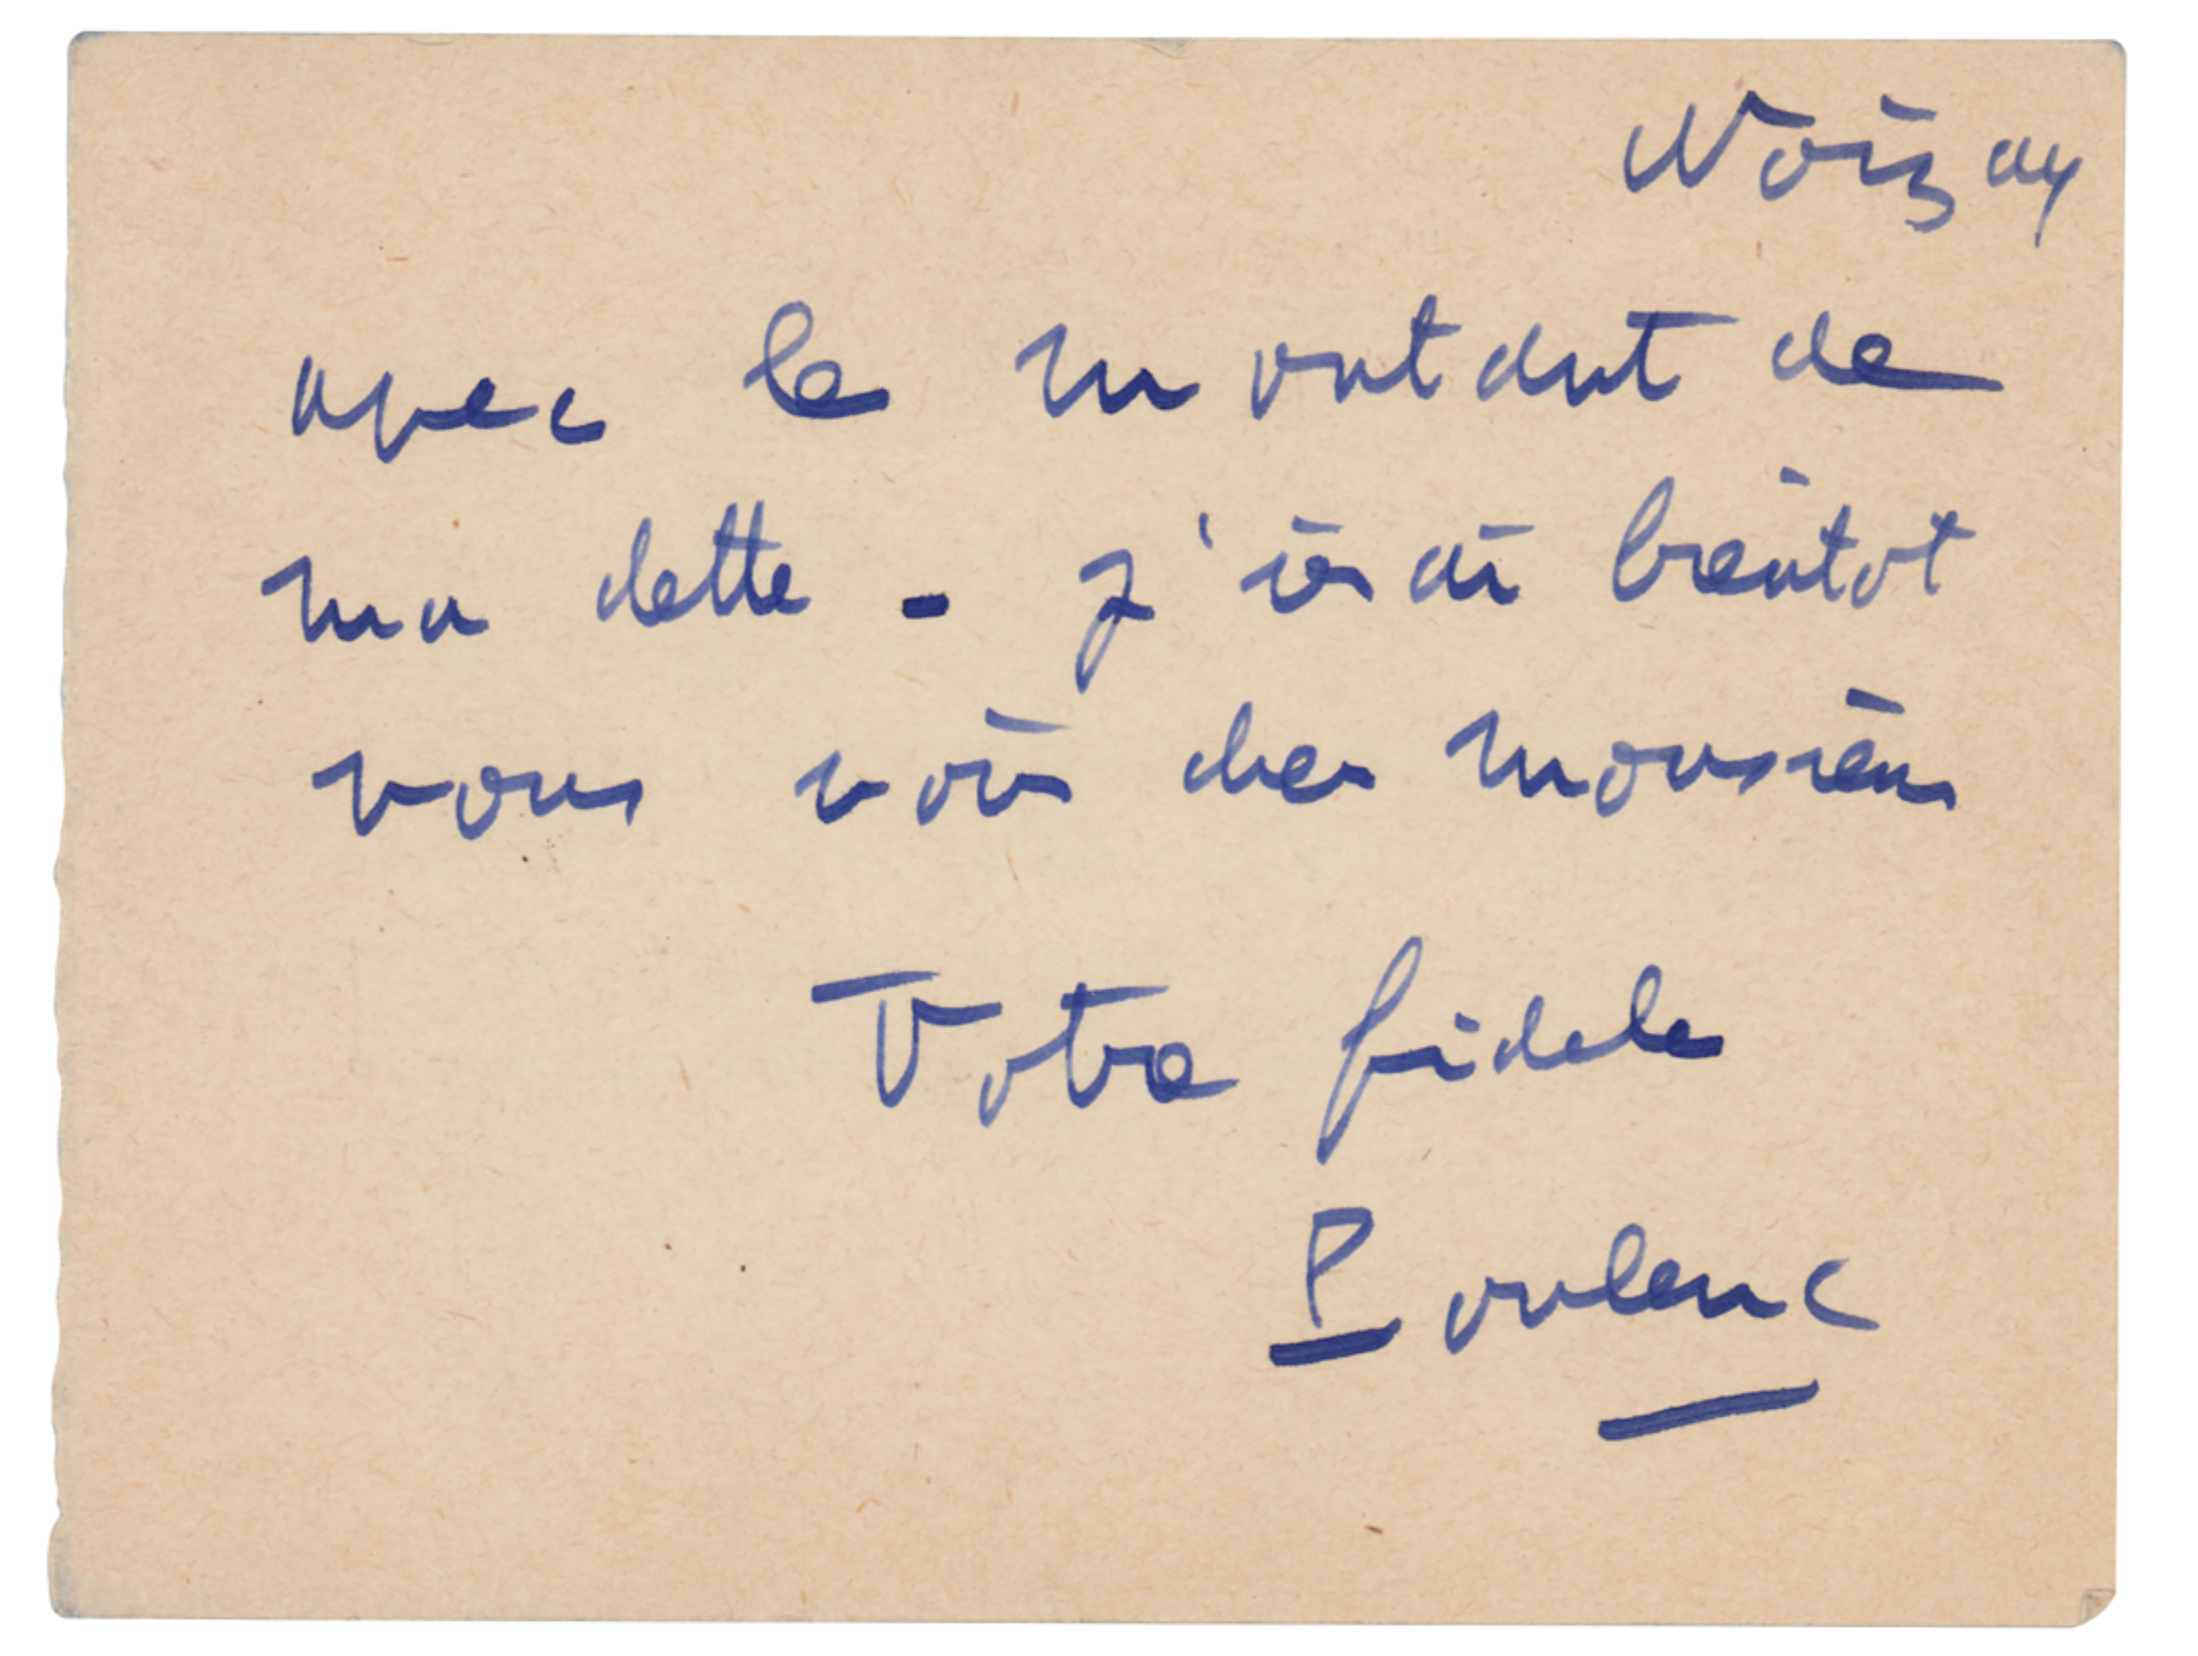 Noizay
avec le montant de
ma dette - j'irai bientot
vous voir cher monsieur
Votre fidele
Poulenc